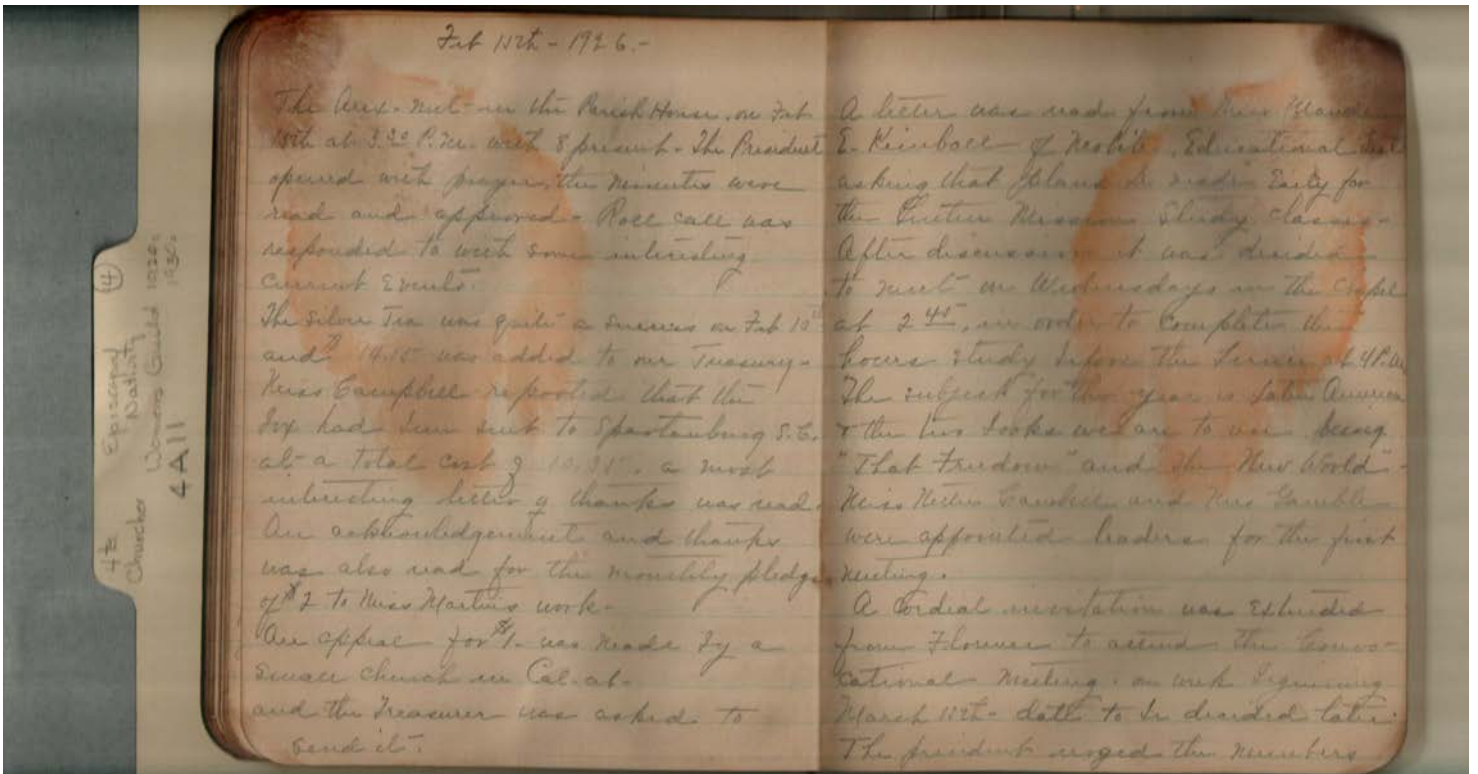 Feb 15th - 1926.-
The Aux. met in the Parish House, on Feb
15th at 3.30 P.M. with 8 present - The President
opened with prayer, the minutes were
read and approved - Roll call was
responded to with some interesting
Current Events.
The Silver Tea was quite a success on Feb 10th
and $14.15 was added to our Treasury -
Miss Campbell reported that the
box had been sent to Spartanburg S.C.
at a total cost of 10.35. a most
interesting letter of thanks was read.
An acknowledgement and thanks
was also read for the monthly pledge
of $2 to Miss Martin's work -
An appeal for $1. was made by a
small church in Cal.
and the Treasurer was asked to
send it.
A letter was read from Miss Maude
E. Kimball of Educational
asking that plans be made Early for
the Lenten Mission Study Classes -
After discussion it was decided
to meet on Wednesdays in the Chapel
at 2 45, in order to complete the
hours study before the Service at 4 P.M.
The subject for this year is Latin America
& the two books we are to use being
"That Freedom" and "The New World" -
Miss Nettie and Gamble
were appointed leaders for the first
meeting.
A Cordial invitation was Extended
from to attend the Convo-
cational - Meeting. on week beginning
March 15th - date to be decided later.
The president urged the members
4th Episcopal (14)
Churches Nativity
Womens Guild 1920s
1930s
4A11